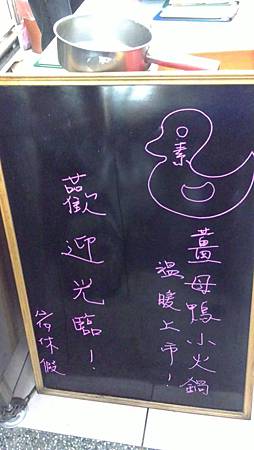 素
薑母鴨小火鍋
溫暖上市！
歡迎光臨！
休假